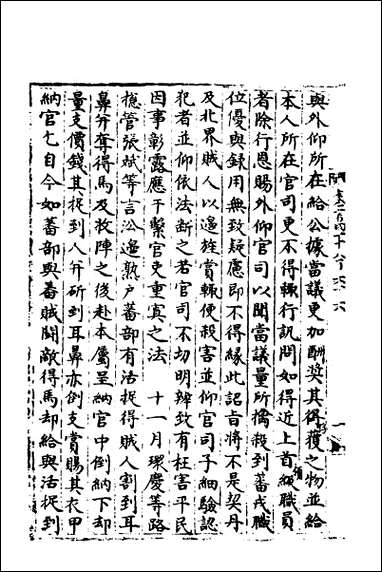 與外仰所在給公據當議更加酬奬其得獲之物並給
本人所在官司更不得輒行訊問如得近上首領職員
者除行恩賜外仰官司以聞當議量所擒殺到蕃戎職
位優與録用無致疑慮即不得緣此詔旨將不是契丹
及北界賊人以邉旌賞輒便殺害並仰官司子細驗認
犯者並仰依法斷之若官司不切明辨致有枉害平民
因事彰露應干繫官吏重寘之法　十一月環慶等路
捴管張斌等言㳂邉熟户蕃部有活捉得賊人割到耳
鼻并奪得馬及收陣之後赴本屬呈納官中倒納下却
量支價錢其捉到人并斫到耳鼻亦倒支賞賜其衣甲
納官乞自今如蕃部與蕃賊鬬敵得馬却給與活捉到